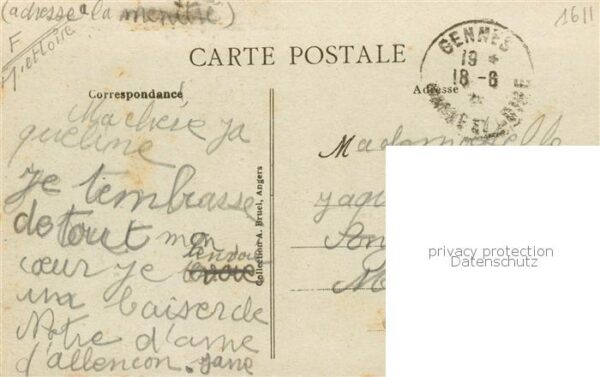 (adresse a la menitré)
F
1611
CARTE POSTALE
Correspondance
Adresse
GENNES
19 *
18 - 6
MAINE ET LOIRE
Ma chère ja
queline
je tembrasse
de tout mon
cœur je tenvoie
un baiser de
Notre d'ame
d'allencon. jane
Collection A. Bruel, Angers
Mademoiselle
privacy protection
Datenschutz